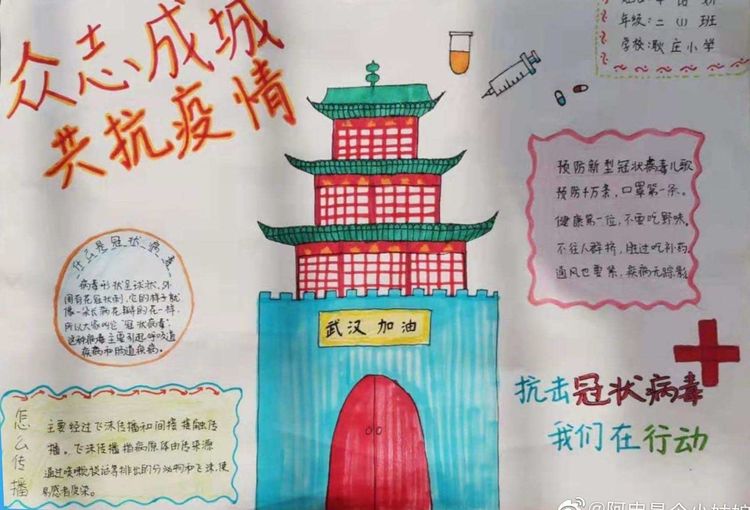 众志成城
共抗疫情
年级:二(1)班
学校:耿庄小学
什么是冠状病毒
病毒形状呈球状,外
围有花冠状刺,它的样子就
像一朵长满花瓣的花一样,
所以大家叫它"冠状病毒",
这种病毒主要引起呼吸道
疾病和肠道疾病。
武汉加油
预防新型冠状病毒儿歌
预防千万条,口罩第一条。
健康第一位,不要吃野味。
不往人群挤,胜过吃补药,
通风也要紧,疾病无踪影
抗击冠状病毒
我们在行动
怎么传播
主要经过飞沫传播和间接接触传
播。飞沫传播指病原体由传染源
通过咳嗽谈话等排出的分泌物和飞沫,使
易感者受染。